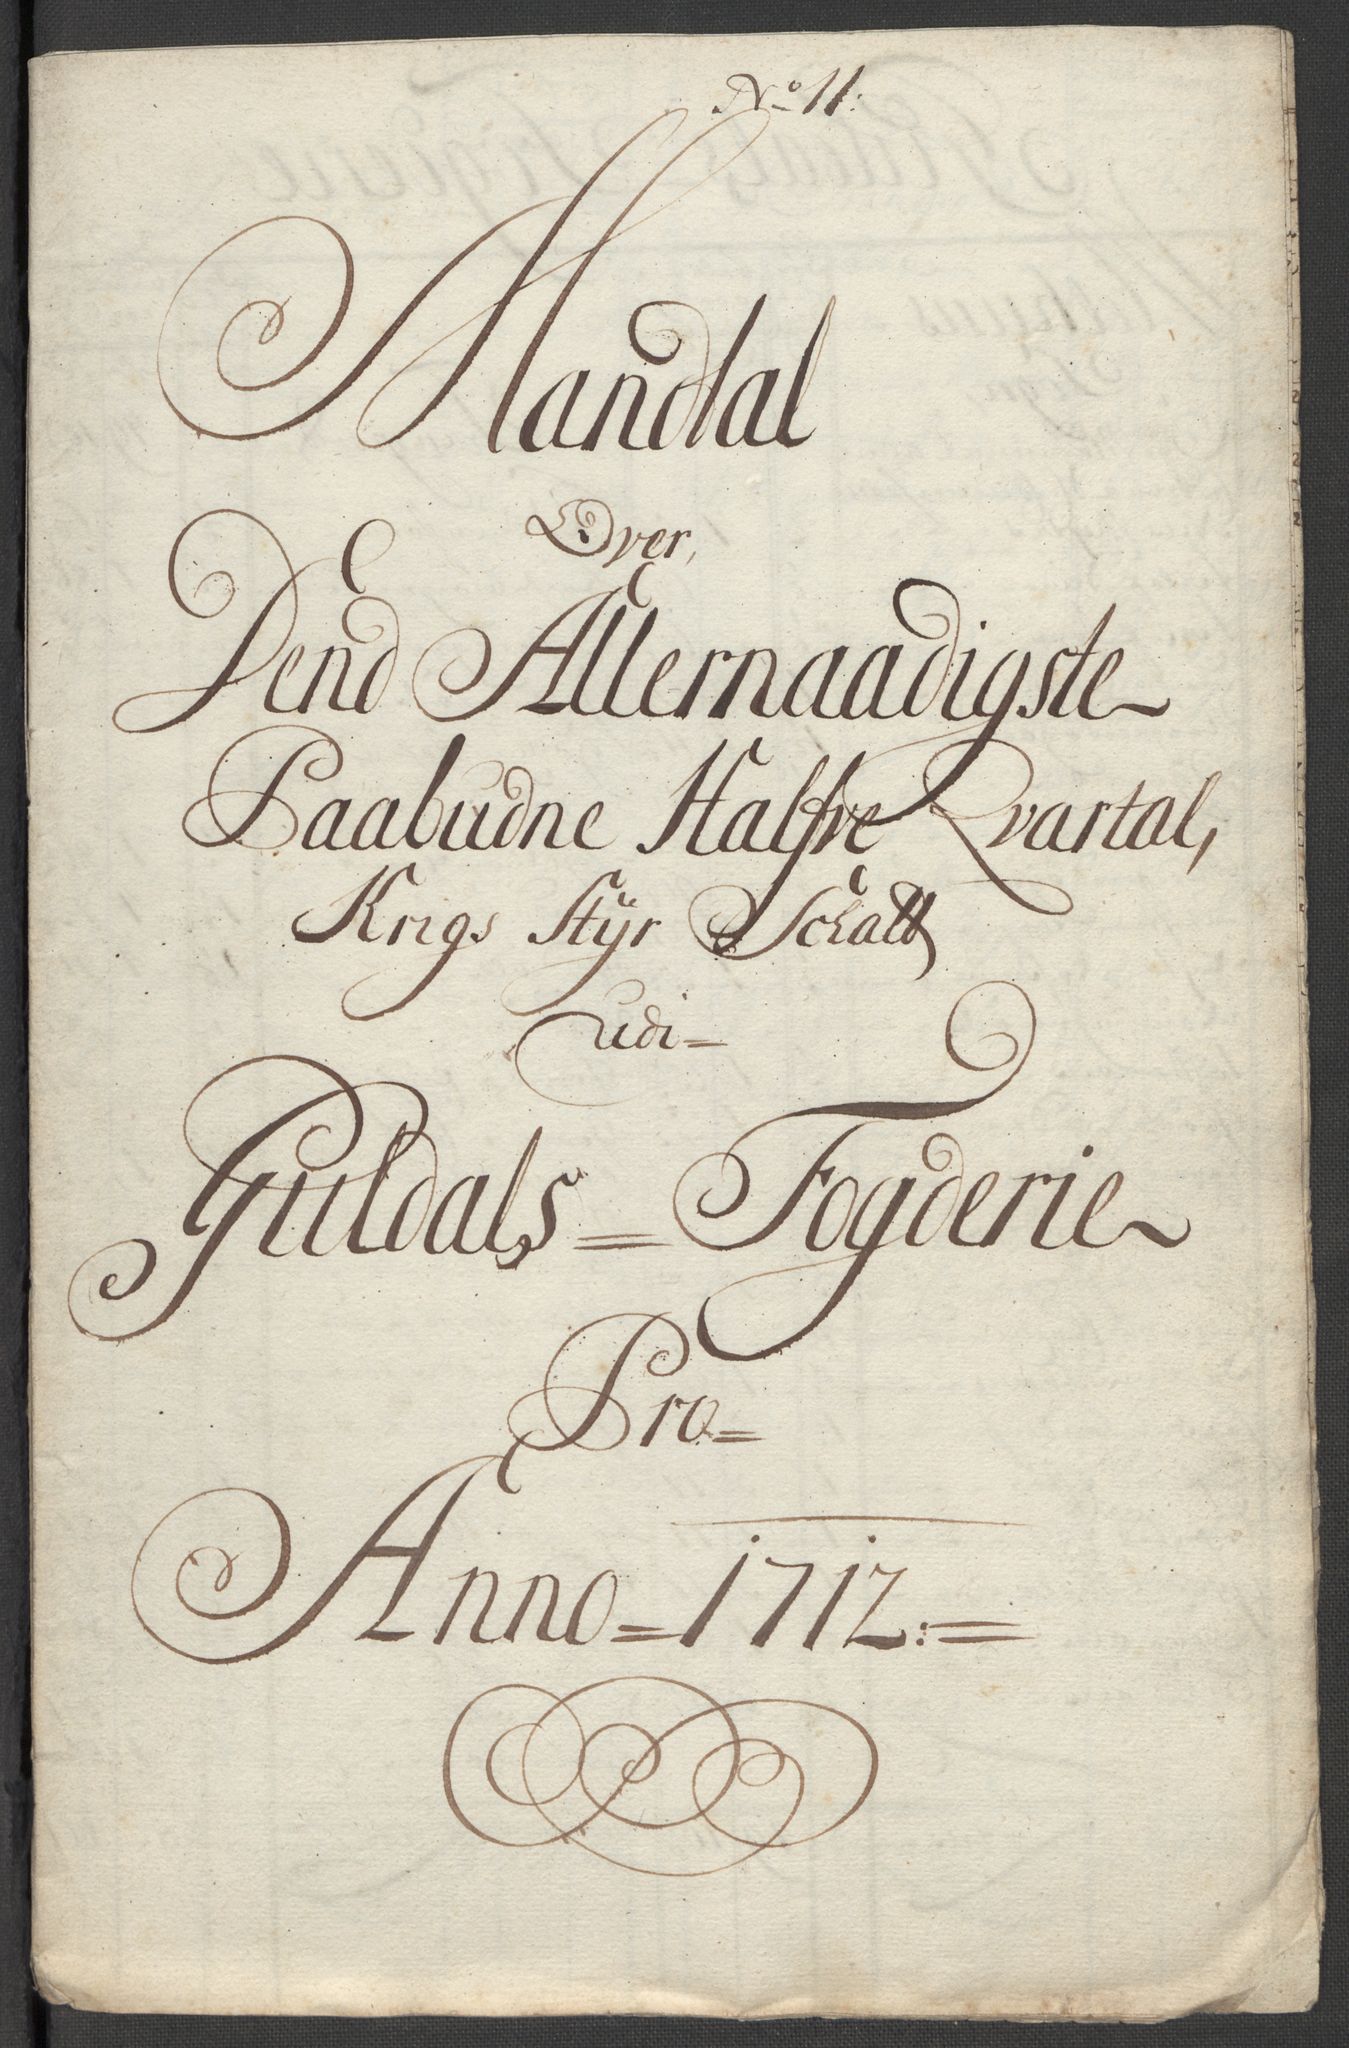 No 11:
Mandtal
Over,
Dend Allernaadigste
Paabudne Halfve Qvartal,
Krigs Styr Schatt
udi=
Guldals= Fogderie
Pro=
Anno=1712:=